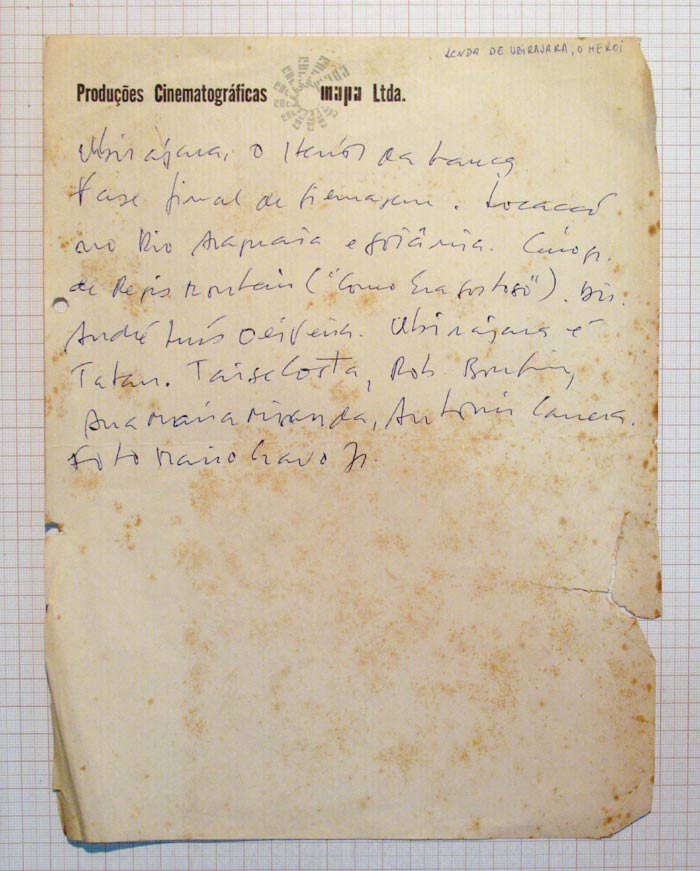 LENDA DE UBIRAJARA, O HEROI
Produções Cinematográficas mapa Ltda.
Ubirajara, o Herói da Lança
Fase final de filmagem. Locação
no Rio Araguaia e Goiânia. Cinogr.
de Regis Monteiro ("Como Era gostoso"). Dir.
André Luís Oliveira. Ubirajara é
Tatau. Taise Costa, Rob. Bonfim,
Ana Maria Miranda, Antonio Carrera.
Foto Mario Cravo Jr.